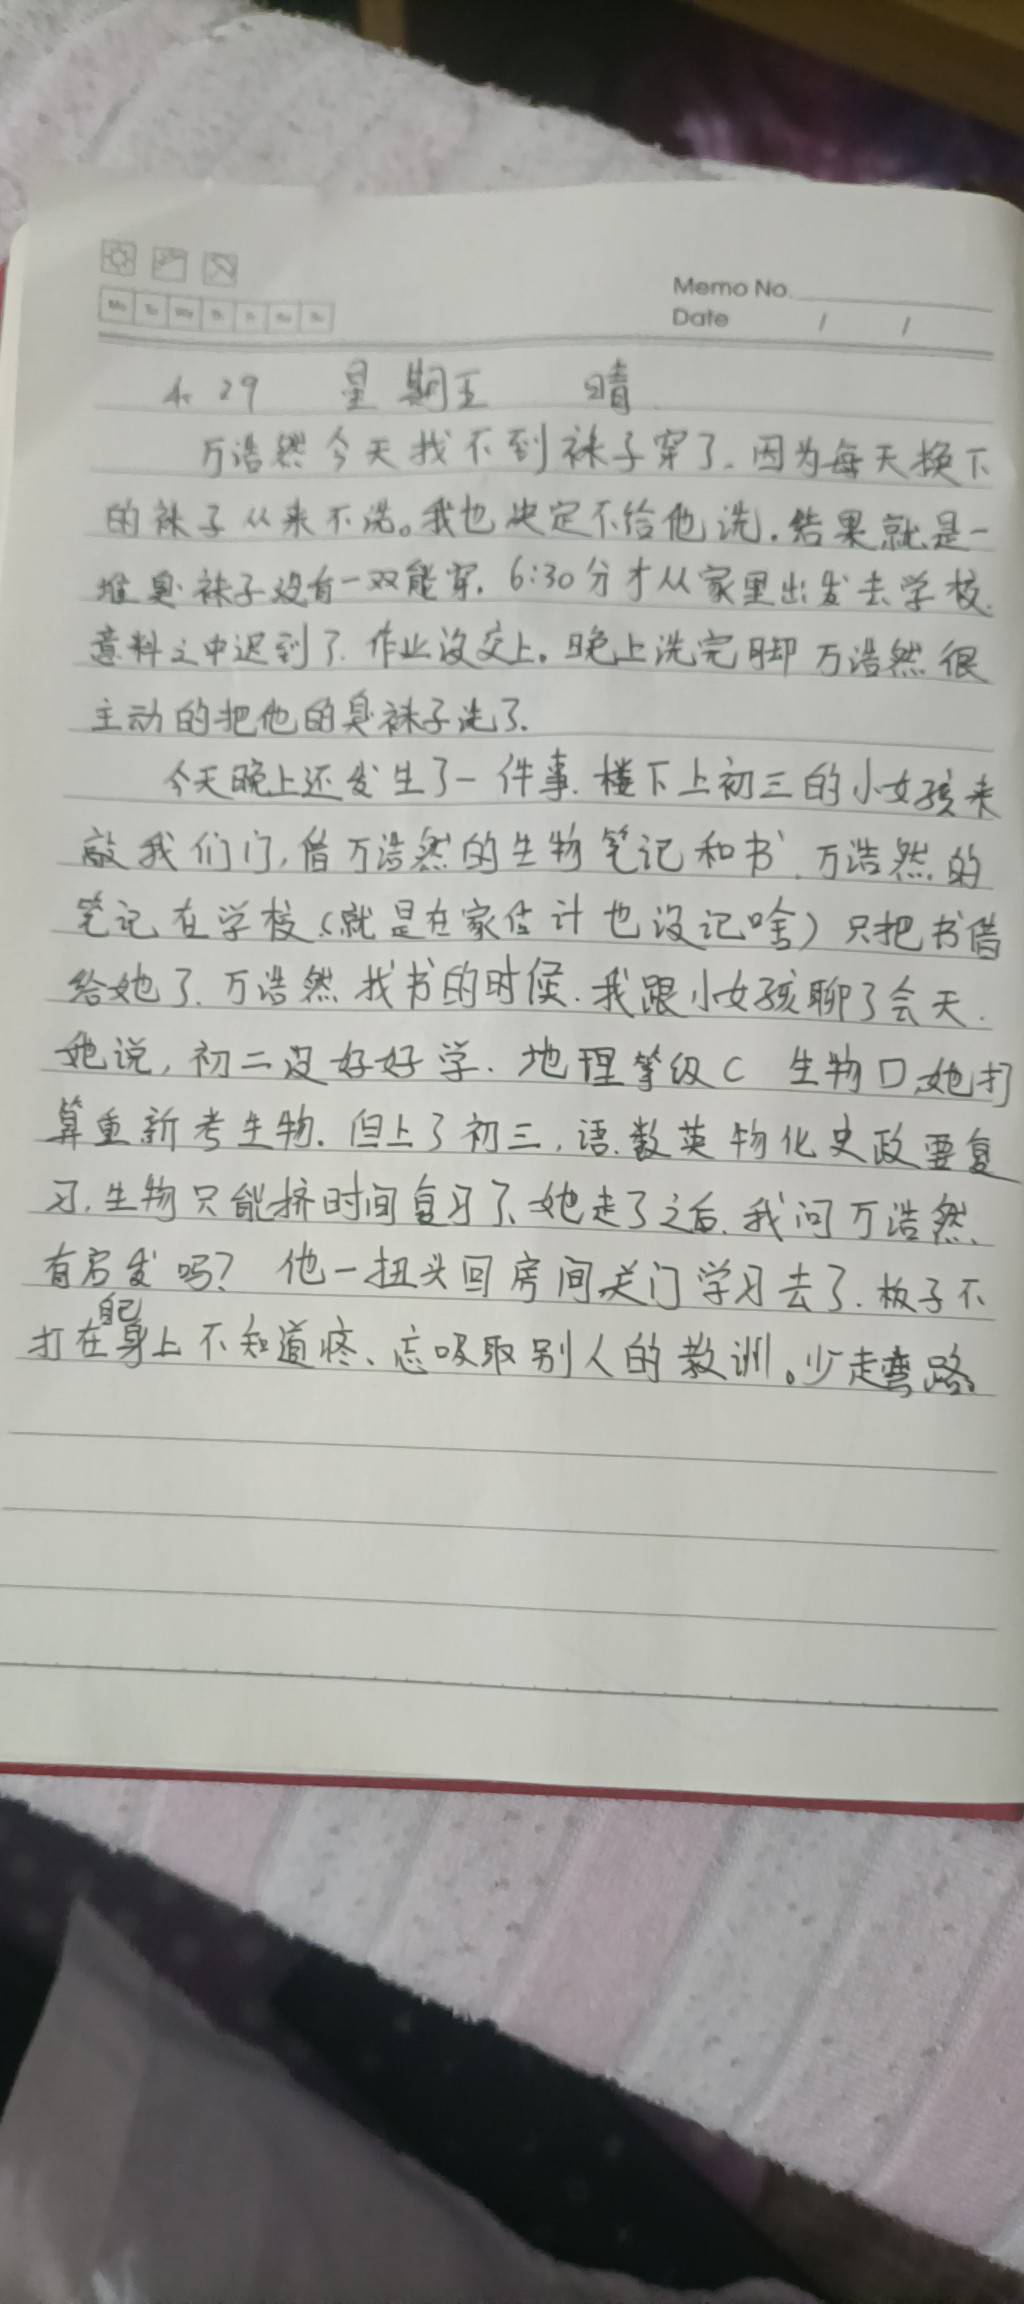 Memo No.
Date / /
4.29 星期五 晴
万浩然今天找不到袜子穿了.因为每天换下
的袜子从来不洗。我也决定不给他洗.结果就是一
堆臭袜子没有一双能穿.6:30分才从家里出发去学校.
意料之中迟到了.作业没交上。晚上洗完脚万浩然很
主动的把他的臭袜子洗了.
今天晚上还发生了一件事.楼下上初三的小女孩来
敲我们门,借万浩然的生物笔记和书.万浩然的
笔记在学校(就是在家估计也没记啥)只把书借
给她了.万浩然找书的时候.我跟小女孩聊了会天.
她说,初二没好好学.地理等级C 生物D,她打
算重新考生物.但上了初三,语.数英物化史政要复
习,生物只能挤时间复习了、她走了之后.我问万浩然.
有启发吗?他一扭头回房间关门学习去了.板子不
打在自己身上不知道疼、忘吸取别人的教训。少走弯路。